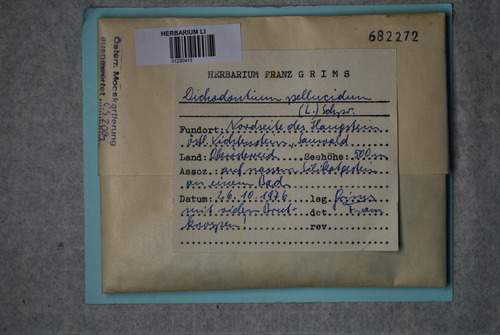 HERBARIUM LI
682272
Österr. Mooskartierung
ausgewertet
HERBARIUM FRANZ GRIMS
Dichodontium pellucidum
(L.) Schpr.
Fundort: Nordseite des Haugstein
östl. Vichtenstein, Sauwald
Land: Oberösterreich Seehöhe: 500m
Assoz. auf nassem Silikatgestein
an einem Bach
Datum: 26.10.1976 leg. Grims
mit vielen Brut- det. Franz
knospen! rev.